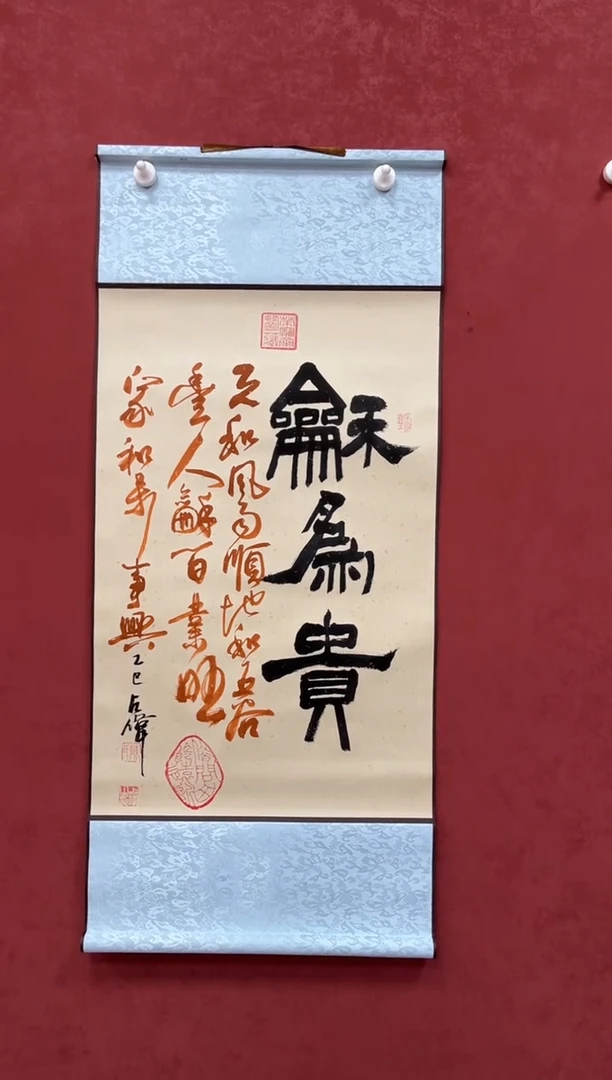 龢為貴
天和風雨順地和五谷
豐人龢百業旺
家和萬事興
乙巳占偉